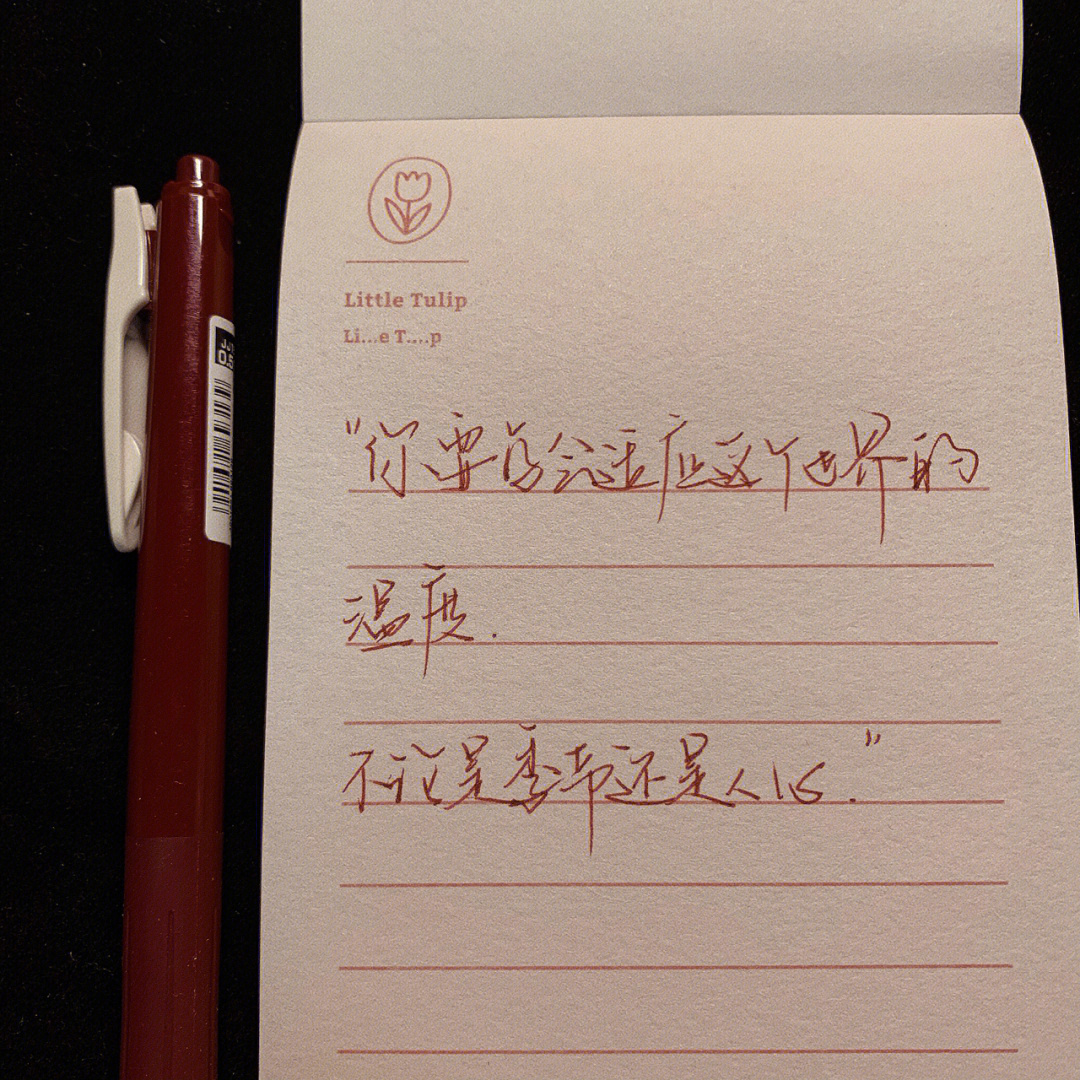 Little Tulip
Li...e T....p
"你要学会适应这个世界的
温度.
不论是季节还是人心."
0.5